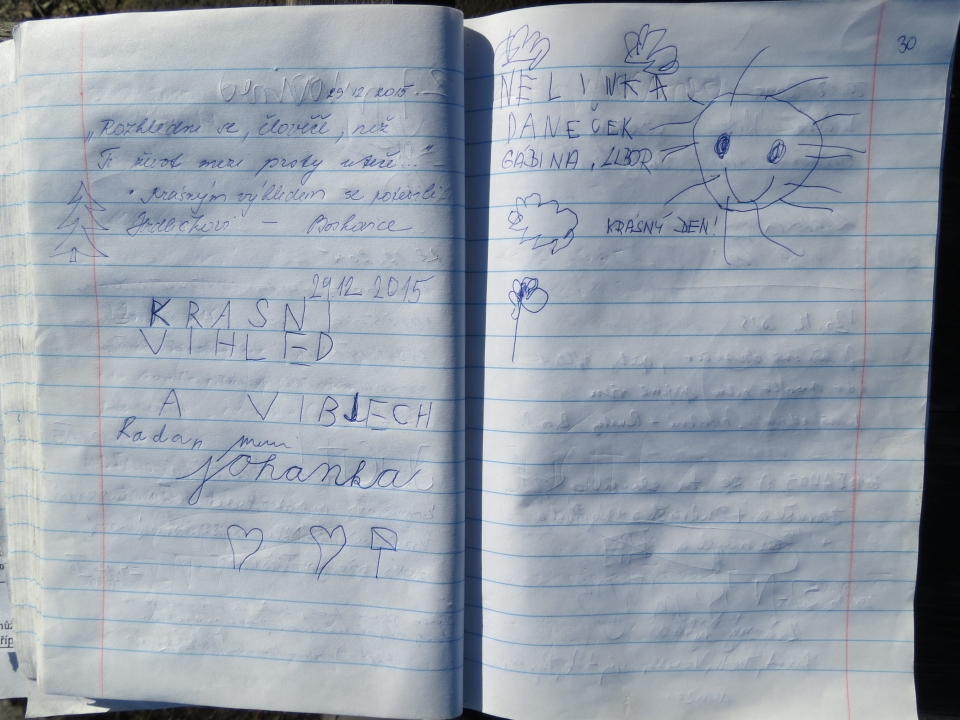 29.12.2015
„Rozhlédni se, člověče, než
Ti život mezi prsty uteče..."
Krásným výhledem se pokochali
Hrdličkovi – Boskovice
29 12 2015
KRASNI
VIHLED
A VIBJECH
Radan
johanka
30
NELINKA
DANEČEK
GÁBINA, LIBOR
KRÁSNÝ DEN!